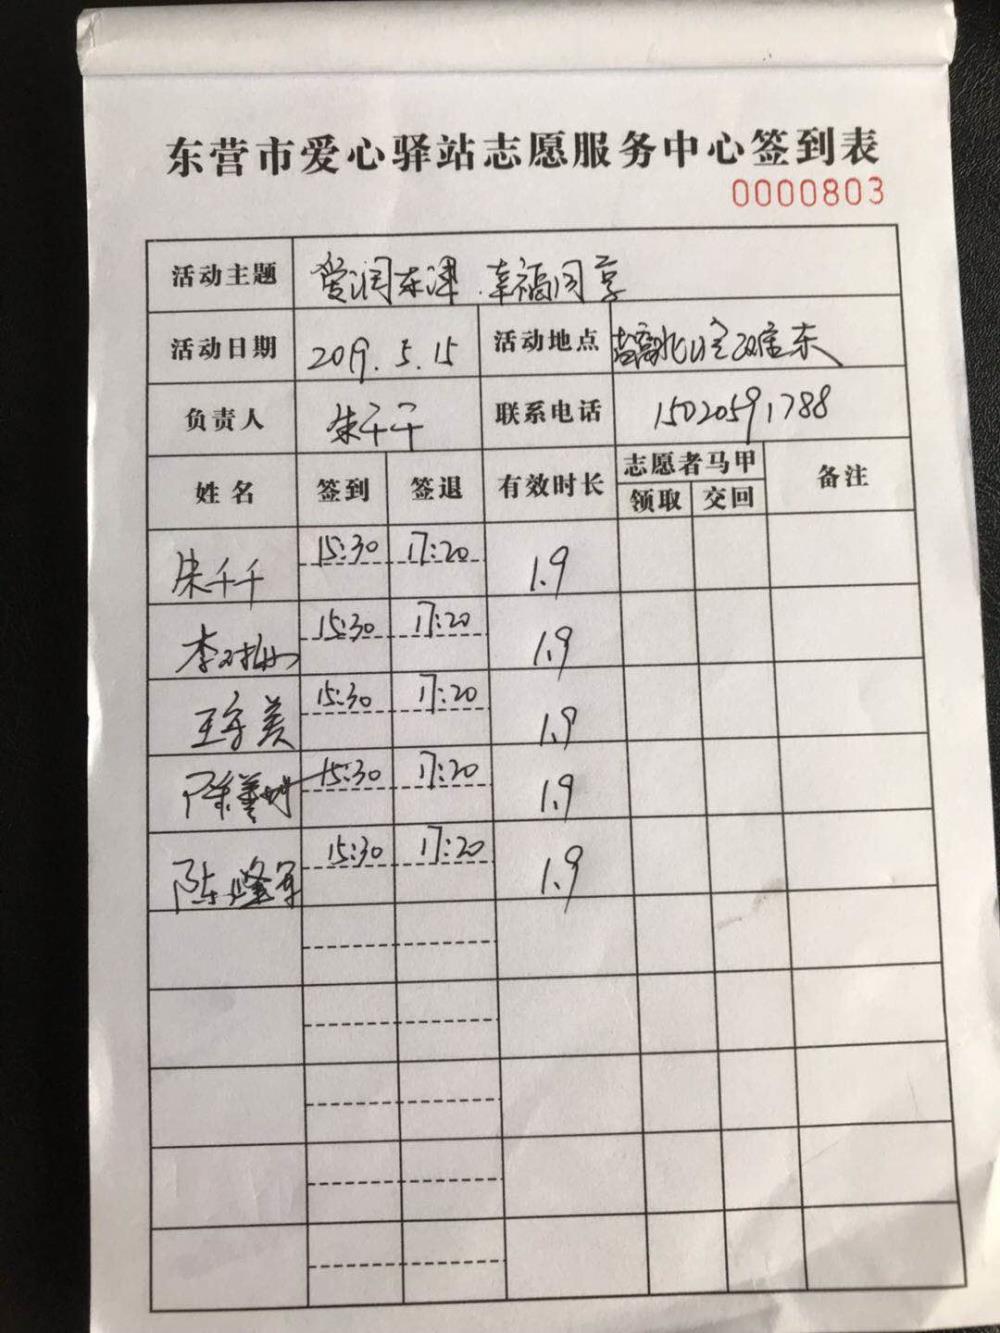 东营市爱心驿站志愿服务中心签到表
0000803
活动主题 爱润东津.幸福同享
活动日期 2019.5.15 活动地点
负责人 朱千千 联系电话 15020591788
姓名 签到 签退 有效时长 志愿者马甲 备注
领取 交回
朱千千 15:30 17:20 1.9
李 15:30 17:20 1.9
王守美 15:30 17:20 1.9
15:30 17:20 1.9
陈峰军 15:30 17:20 1.9